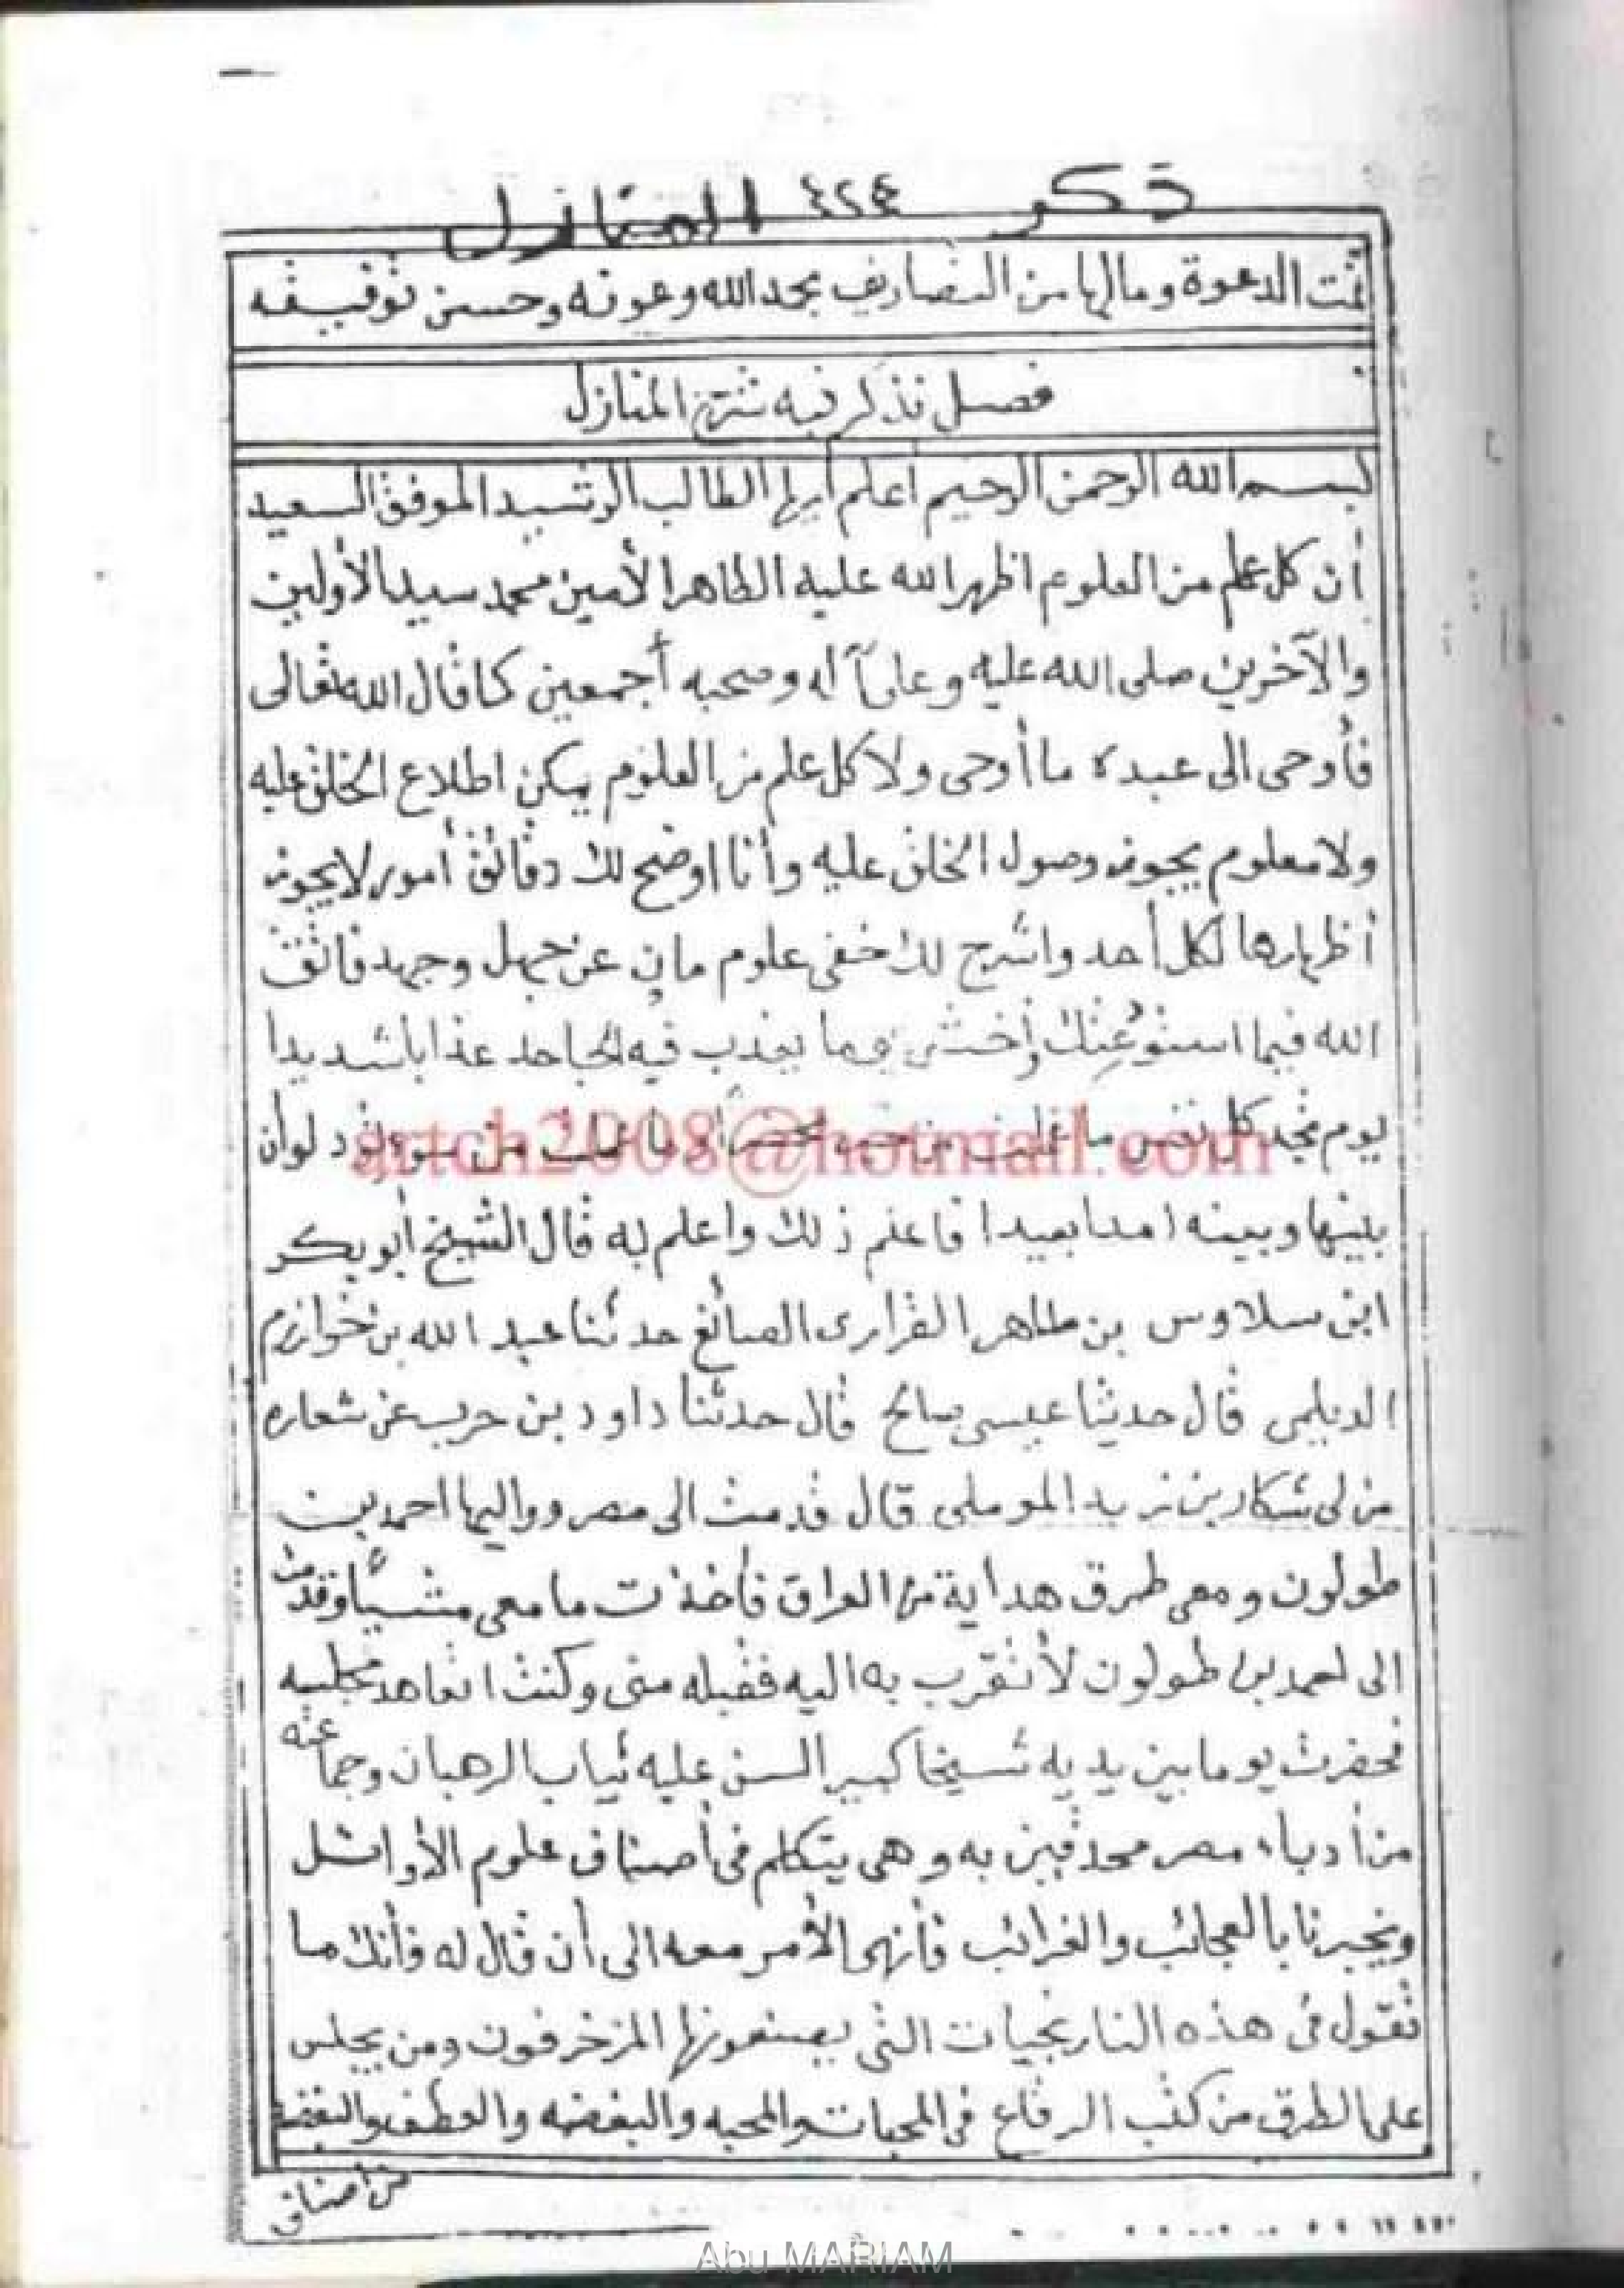 ذكر ٤٢٤ المنازل
تمت الدعوة ومالها من التصاريف بحمد الله وعونه وحسن توفيقه
فصل نذكر فيه شرح المنازل
بسم الله الرحمن الرحيم اعلم أيها الطالب الرشيد الموفق السعيد
أن كل علم من العلوم اظهر الله عليه الطاهر الأمين محمد سيد الأولين
والآخرين صلى الله عليه وعلى آله وصحبه أجمعين كما قال الله تعالى
فأوحى الى عبده ما أوحى ولا كل علم من العلوم يمكن اطلاع الخلق عليه
ولا معلوم يجوز وصول الخلق عليه وأنا اوضح لك دقائق أمور لا يجوز
أظهارها لكل أحد واشرح لك خفى علوم مان عن جهل وجهد فاتق
الله فيما استودعتك وأخشى يوما يعذب فيه الجاحد عذابا شديدا
يوم تجد كل نفس ما عملت من خير محضرا وما عملت من سوء تود لو أن
بينها وبينه امدا بعيدا فاعلم ذلك واعلم به قال الشيخ أبو بكر
ابن سلاوس بن طاهر الفزارى الصائغ حدثنا عبد الله بن خوازم
الديلمى قال حديثا عيسى صالح قال حدثنا داود بن حرب عن شعاره
من لى شكار بن زيد الموصلى قال قدمت الى مصر وواليها احمد بن
طولون ومعى طرق هداية من العراق فأخذت ما معى مشيأ وقدمت
الى احمد بن طولون لأتقرب به اليه فقبله منى وكنت اتعاهد مجلسه
فحضرت يوما بين يديه شيخا كبير السن عليه ثياب الرهبان وجماعته
من أدباء مصر محدقين به وهى يتكلم فى أصناف علوم الأوائل
ويخبرنا بالعجائب والغرائب فأنهى الأمر معه الى أن قال له فأنك ما
تقول فى هذه النارنجيات التى يصنعونها المزخرفون ومن يجلس
على الطرق من كتب الرقاع فى المحبات والمحبه والبغضه والعطف والبغضه
من أصناف
artch2008@hotmail.com
Abu MARIAM